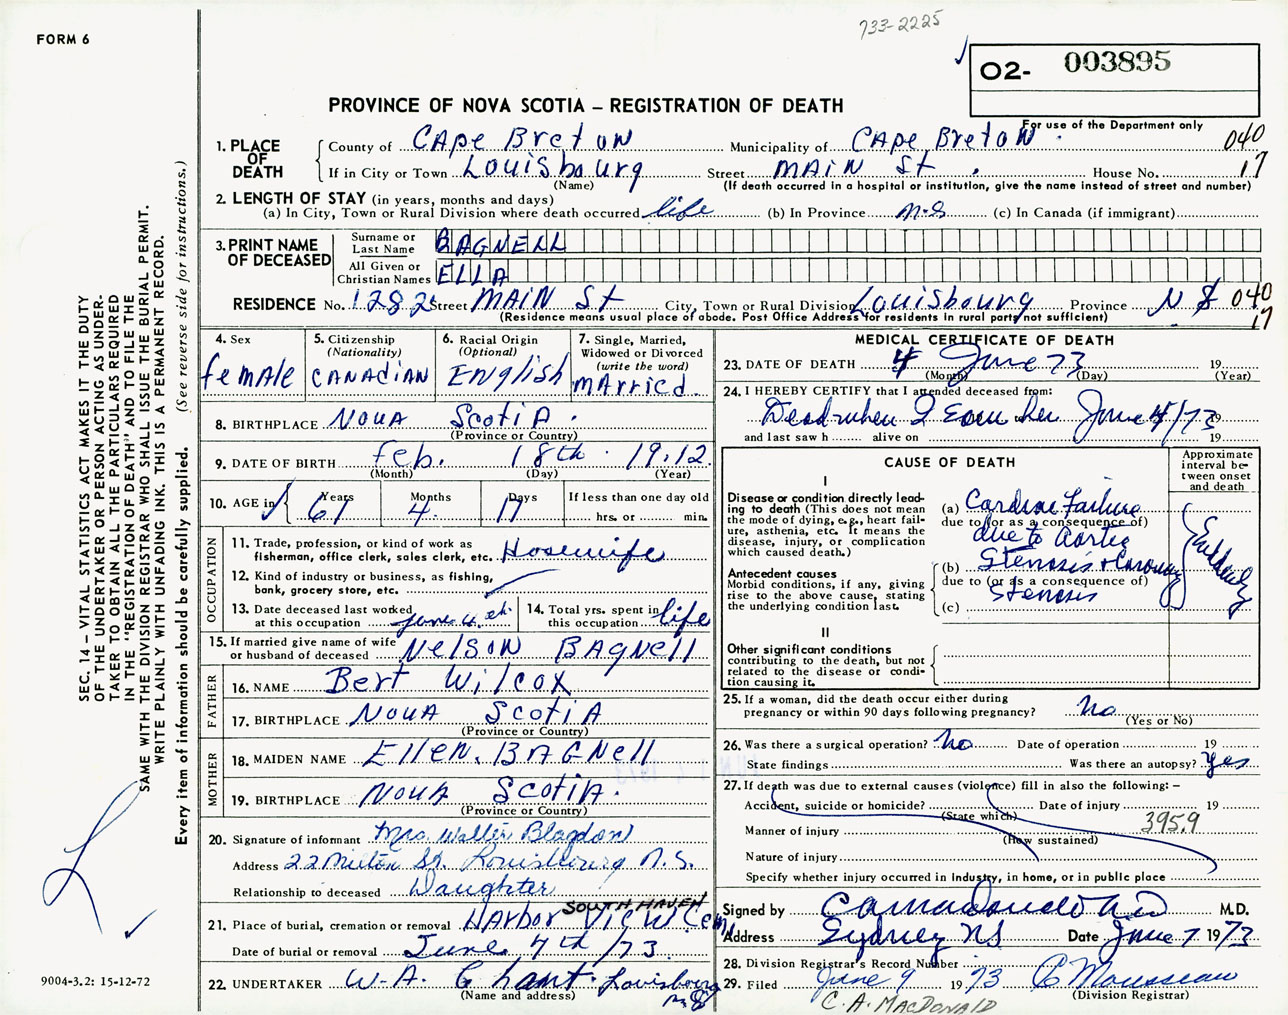 733-2225
FORM 6
O2- 003895
PROVINCE OF NOVA SCOTIA – REGISTRATION OF DEATH
For use of the Department only
1. PLACE OF DEATH
County of CApe BretoN Municipality of CApe BretoN 040
If in City or Town Louisbourg Street MAiN St. House No. 17
(Name) (If death occurred in a hospital or institution, give the name instead of street and number)
2. LENGTH OF STAY (in years, months and days)
(a) In City, Town or Rural Division where death occurred life (b) In Province N.S (c) In Canada (if immigrant)
3. PRINT NAME OF DECEASED
Surname or Last Name BAGNELL
All Given or Christian Names ELLA
RESIDENCE No. 1282 Street MAiN St City, Town or Rural Division Louisbourg Province N S 040
(Residence means usual place of abode. Post Office Address for residents in rural parts not sufficient) 17
4. Sex
female
5. Citizenship (Nationality)
CANADiAN
6. Racial Origin (Optional)
ENglish
7. Single, Married, Widowed or Divorced (write the word)
mArried.
8. BIRTHPLACE NovA ScotiA.
(Province or Country)
9. DATE OF BIRTH feb. 18th 1912
(Month) (Day) (Year)
10. AGE in Years Months Days If less than one day old
61 4 17 hrs. or min.
OCCUPATION
11. Trade, profession, or kind of work as fisherman, office clerk, sales clerk, etc. Hosewife
12. Kind of industry or business, as fishing, bank, grocery store, etc.
13. Date deceased last worked at this occupation June 4
14. Total yrs. spent in this occupation life
15. If married give name of wife or husband of deceased NelsoN BAgNell
FATHER
16. NAME Bert Wilcox
17. BIRTHPLACE NovA ScotiA
(Province or Country)
MOTHER
18. MAIDEN NAME EllEN. BAGNell
19. BIRTHPLACE NovA ScotiA.
(Province or Country)
20. Signature of informant Mrs Walter Blagdon
Address 22 Milton St. Louisbourg N.S.
Relationship to deceased Daughter
SOUTH HAVEN
21. Place of burial, cremation or removal HArbor View Cem
Date of burial or removal June 7th /73
22. UNDERTAKER W.A. Chant. Louisbourg N S
(Name and address)
MEDICAL CERTIFICATE OF DEATH
23. DATE OF DEATH 4 June 73 19
(Month) (Day) (Year)
24. I HEREBY CERTIFY that I attended deceased from:
Dead when I saw her June 4/73 19
and last saw h alive on 19
CAUSE OF DEATH
Approximate interval between onset and death
I
Disease or condition directly leading to death (This does not mean the mode of dying, e.g., heart failure, asthenia, etc. It means the disease, injury, or complication which caused death.)
(a) Cardiac Failure
due to (or as a consequence of)
due to Aortic
Antecedent causes
Morbid conditions, if any, giving rise to the above cause, stating the underlying condition last.
(b) Stenosis + Coronary
due to (or as a consequence of)
Stenosis
(c)
Suddenly
II
Other significant conditions contributing to the death, but not related to the disease or condition causing it.
25. If a woman, did the death occur either during pregnancy or within 90 days following pregnancy? no
(Yes or No)
26. Was there a surgical operation? no Date of operation 19
State findings Was there an autopsy? yes
27. If death was due to external causes (violence) fill in also the following: –
Accident, suicide or homicide? Date of injury 19
(State which)
Manner of injury 395.9
(How sustained)
Nature of injury
Specify whether injury occurred in Industry, in home, or in public place
Signed by M.D.
Address Sydney NS Date June 7 1973
28. Division Registrar's Record Number
29. Filed June 9 1973 C Mousseau
(Division Registrar)
C. A. MACDONALD
SEC. 14 – VITAL STATISTICS ACT MAKES IT THE DUTY
OF THE UNDERTAKER OR PERSON ACTING AS UNDER-
TAKER TO OBTAIN ALL THE PARTICULARS REQUIRED
IN THE "REGISTRATION OF DEATH" AND TO FILE THE
SAME WITH THE DIVISION REGISTRAR WHO SHALL ISSUE THE BURIAL PERMIT.
WRITE PLAINLY WITH UNFADING INK. THIS IS A PERMANENT RECORD.
Every item of information should be carefully supplied. (See reverse side for instructions.)
9004-3.2: 15-12-72